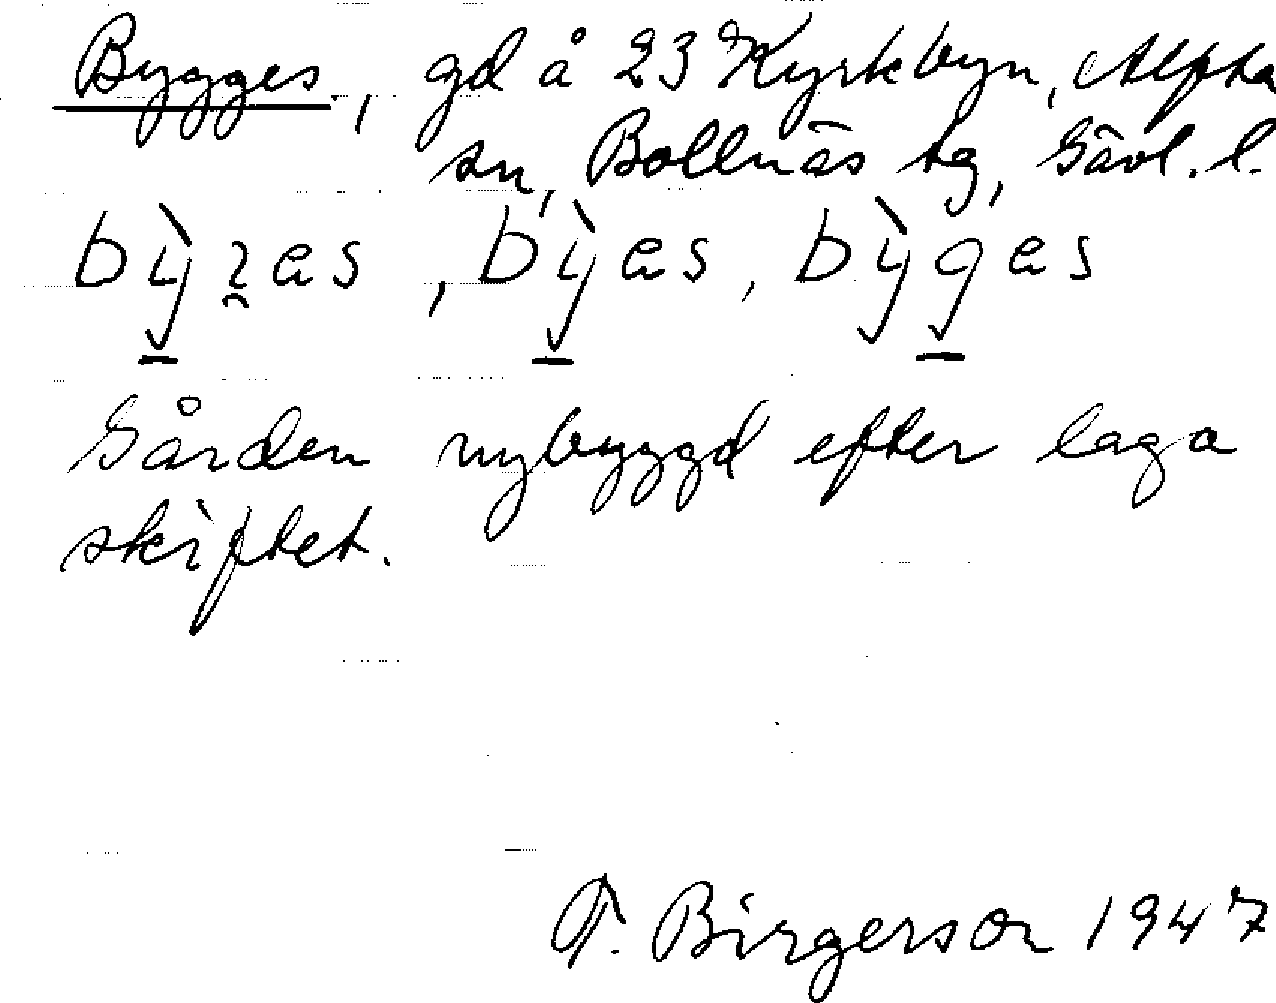 Bygges, gd å 23 Kyrkbyn, Alfta
sn, Bollnäs tg, Gävl. l.
Gården nybyggd efter laga
skiftet.
T. Birgerson 1947